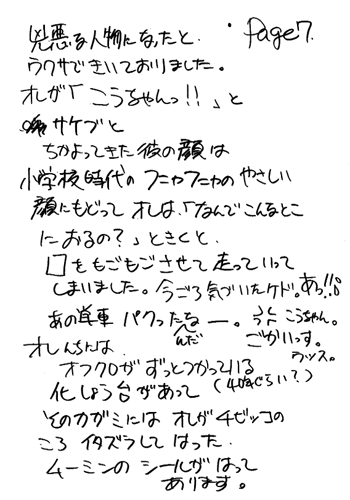 Page 7.
兇悪な人物になったと.
ウワサできいておりました。
オレが「こうちゃんっ!!」と
サケブと
ちかよってきた彼の顔は
小学校時代のフニャフニャのやさしい
顔にもどって オレは、「なんでこんなとこ
におるの?」ときくと、
口をもごもごさせて 走っていって
しまいました。今ごろ気づいたケド。あっ!!!
あの単車 パクったな
んだ
ー。 こうちゃん。
ごかいっす。
ウッス。
オレんちには
オフクロがずっとつかっている
化しょう台があって (40年ぐらい?)
そのカガミには オレがチビッコの
ころ イタズラしてはった.
ムーミンの シールがはって
あります。